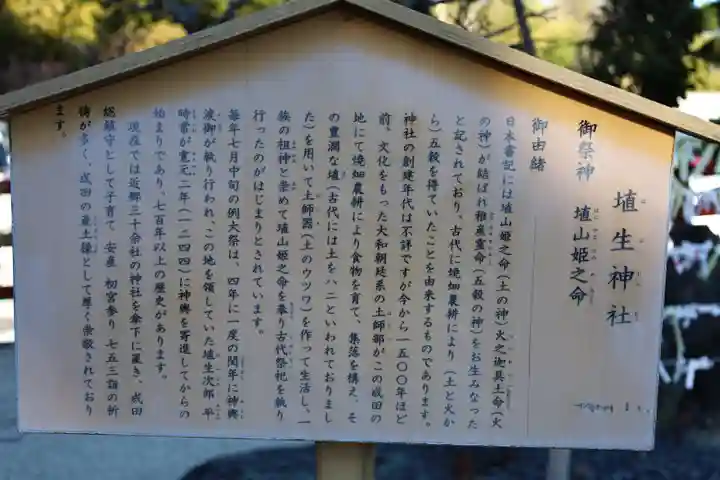 埴生神社
御祭神　埴山姫之命
御由緒
日本書記には埴山姫之命（土の神）火之迦具土命（火
の神）が結ばれ稚産霊命（五穀の神）をお生みなった
と記されており、古代に焼畑農耕により（土と火か
ら）五穀を得ていたことを由来するものであります。
神社の創建年代は不詳ですが今から一五〇〇年ほど
前、文化をもった大和朝廷系の土師部がこの成田の
地にて焼畑農耕により食物を育て、集落を構え、そ
の豊潤な埴（古代には土をハニといわれておりまし
た）を用いて土師器（土のウツワ）を作って生活し、一
族の祖神と崇めて埴山姫之命を奉り古代祭祀を執り
行ったのがはじまりとされています。
毎年七月中旬の例大祭は、四年に一度の閏年に神輿
渡御が執り行われ、この地を領していた埴生次郎平
時常が寛元二年（一二四四）に神輿を寄進してからの
始まりであり、七百年以上の歴史があります。
現在では近郷三十余社の神社を傘下に置き、成田
総鎮守として子育て 安産 初宮参り 七五三詣の祈
祷が多く、成田の産土様として厚く崇敬されており
ます。